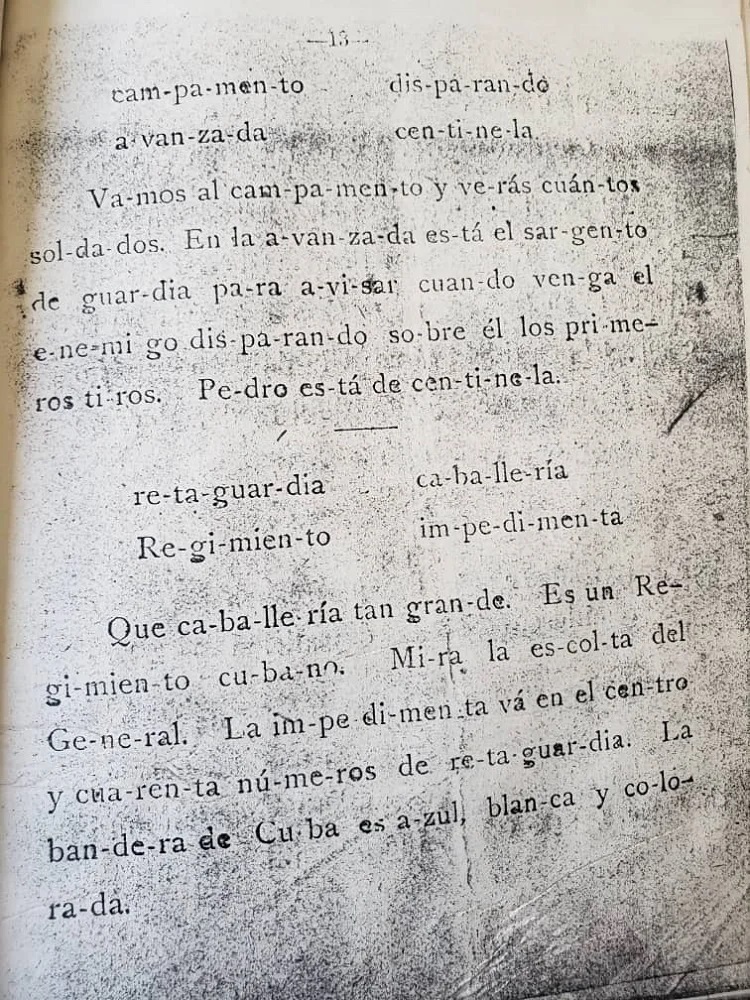 —13—
cam-pa-men-to dis-pa-ran-do
a-van-za-da cen-ti-ne-la.
Va-mos al cam-pa-men-to y ve-rás cuán-tos
sol-da-dos. En la a-van-za-da es-tá el sar-gen-to
de guar-dia pa-ra a-vi-sar cuan-do ven-ga el
e-ne-mi go dis-pa-ran-do so-bre él los pri-me-
ros ti-ros. Pe-dro es-tá de cen-ti-ne-la.
re-ta-guar-dia ca-ba-lle-ría
Re-gi-mien-to im-pe-di-men-ta
Que ca-ba-lle-ría tan gran-de. Es un Re-
gi-mien-to cu-ba-no. Mi-ra la es-col-ta del
Ge-ne-ral. La im-pe di-men-ta vá en el cen-tro
y cua-ren-ta nú-me-ros de re-ta-guar-dia. La
ban-de-ra de Cu-ba es a-zul, blan-ca y co-lo-
ra-da.